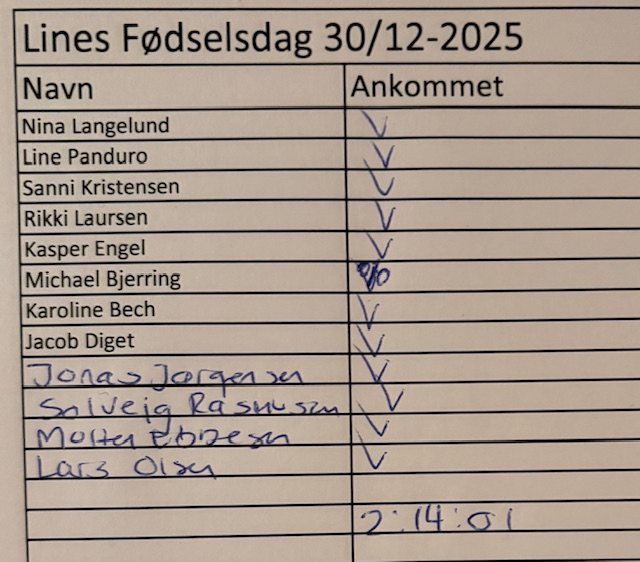 Lines Fødselsdag 30/12-2025
Navn Ankommet
Nina Langelund ✓
Line Panduro ✓
Sanni Kristensen ✓
Rikki Laursen ✓
Kasper Engel ✓
Michael Bjerring
Karoline Bech ✓
Jacob Diget ✓
Jonas Jørgensen ✓
Solveig Rasmussen ✓
✓
Lars Olsen ✓
2:14:01